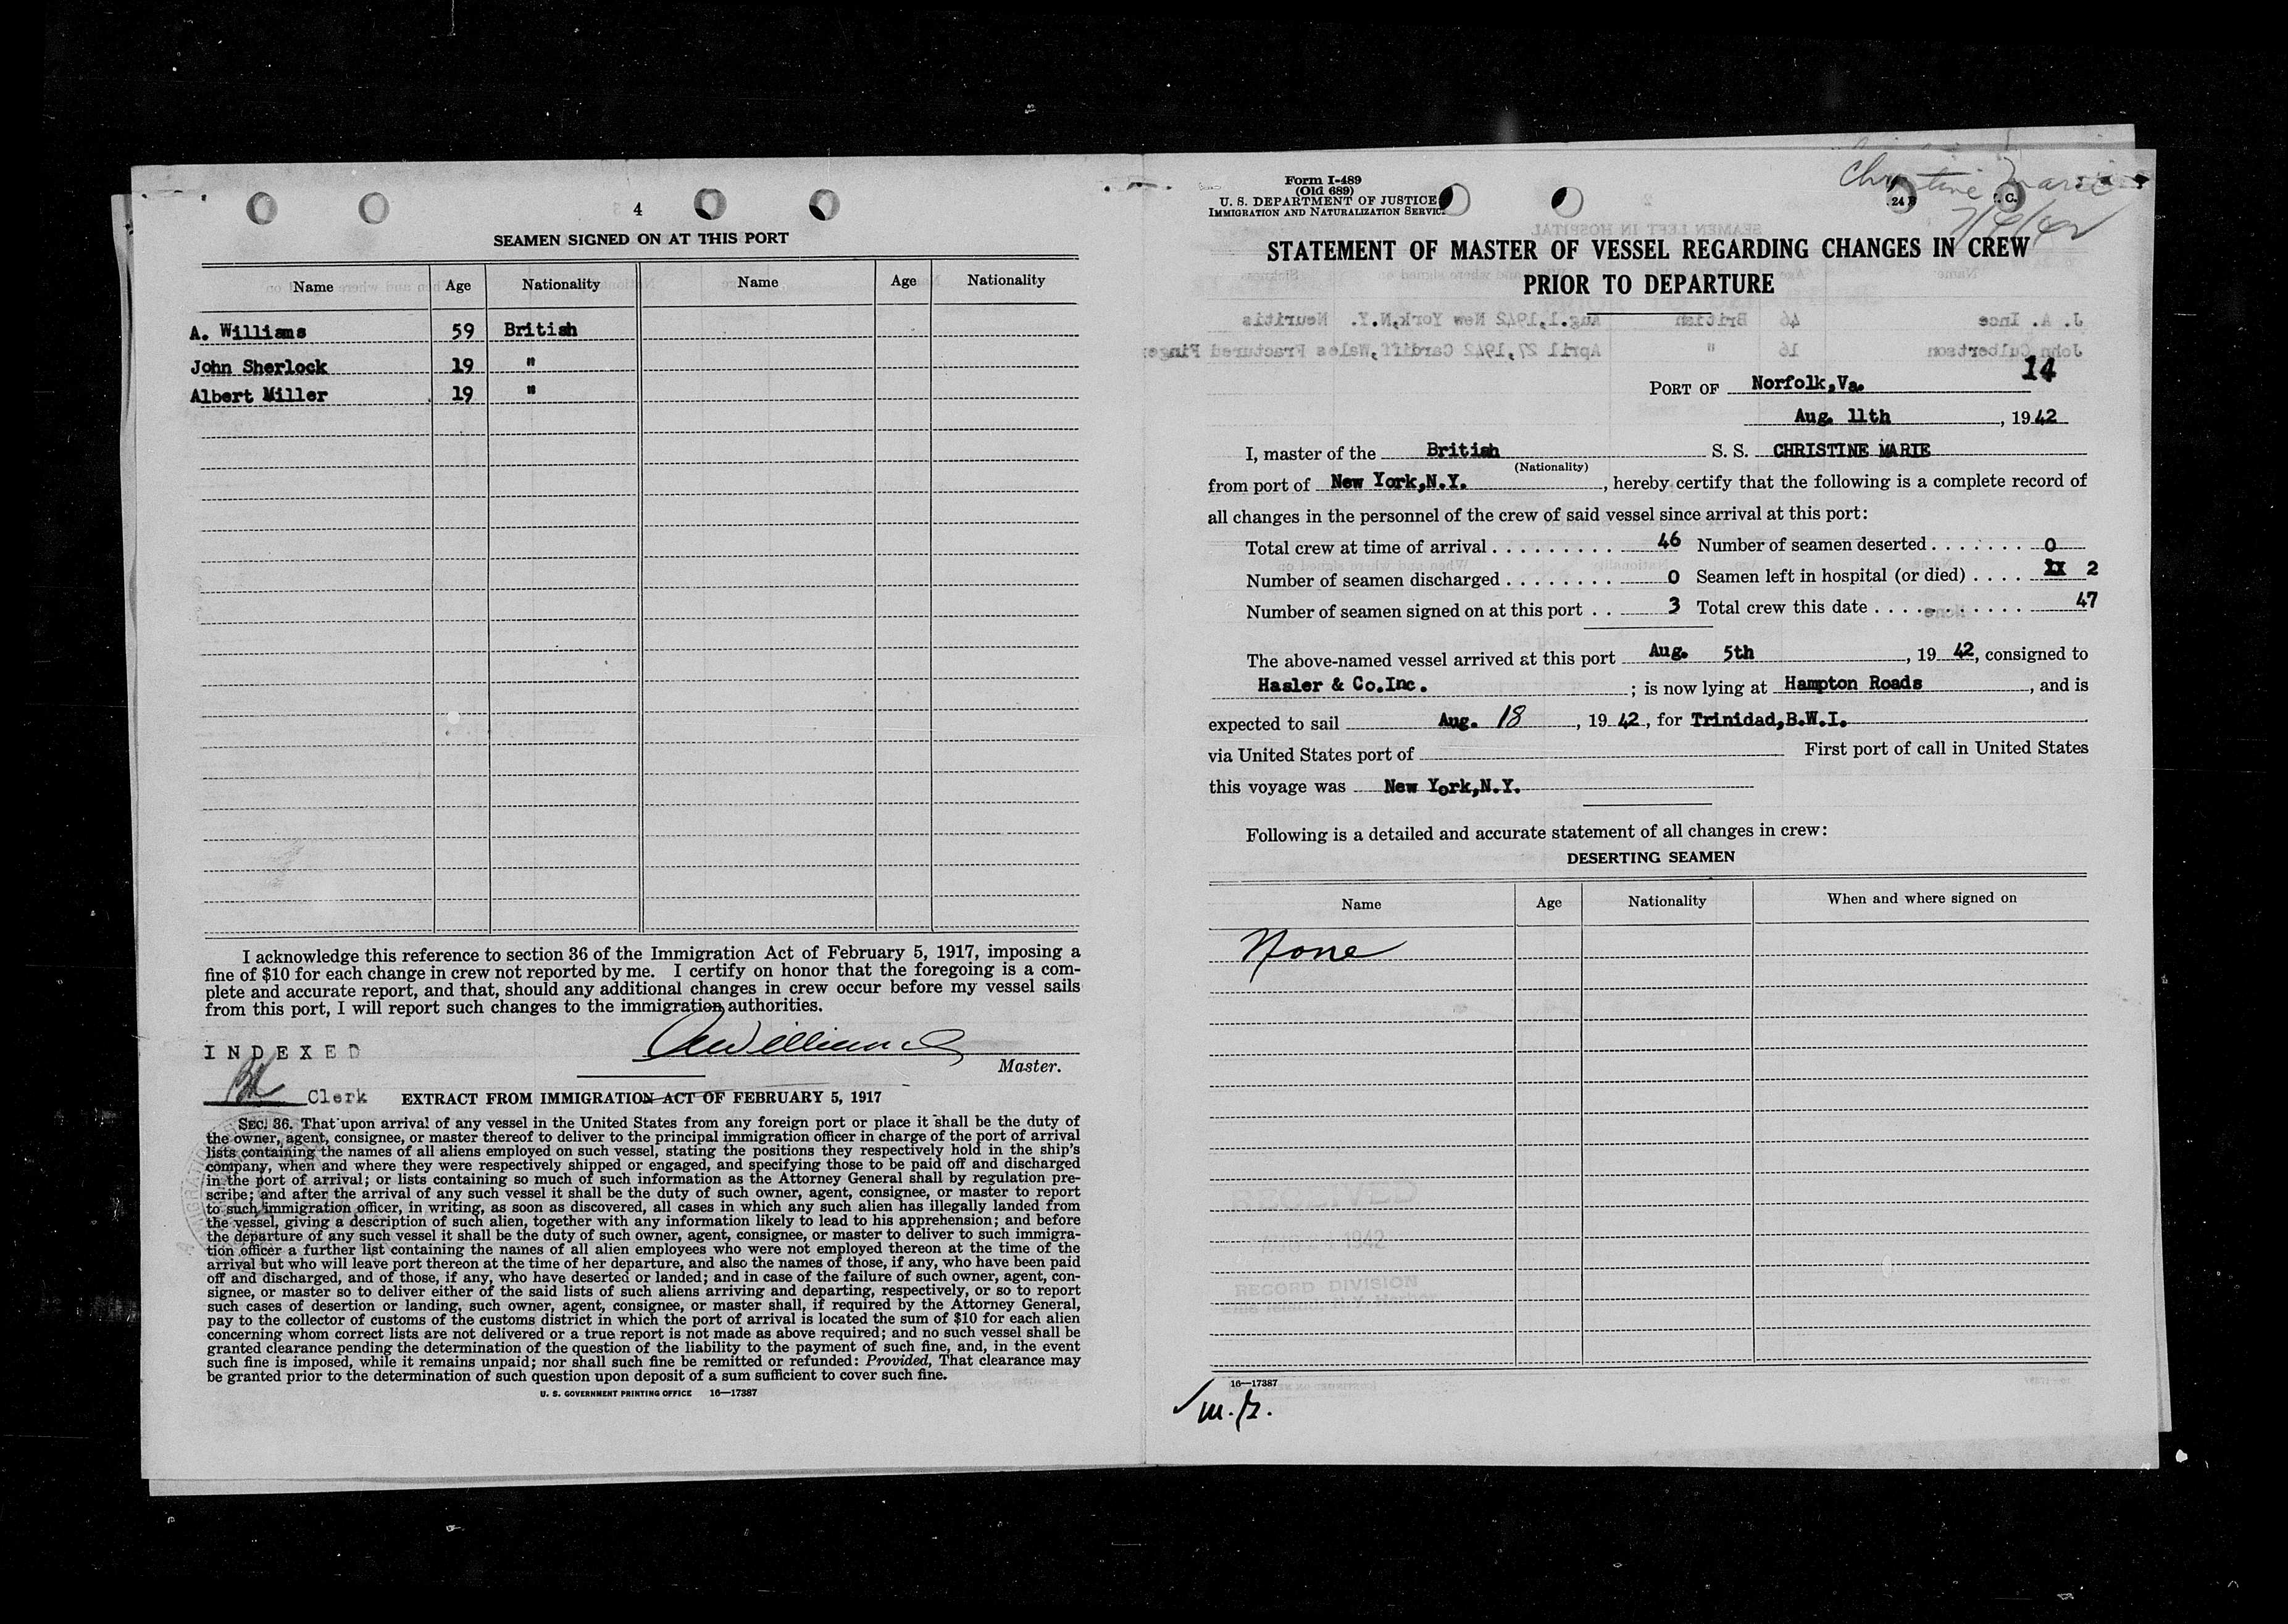 4
SEAMEN SIGNED ON AT THIS PORT
Name Age Nationality Name Age Nationality
A. Williams 59 British
John Sherlock 19 "
Albert Miller 19 "
I acknowledge this reference to section 36 of the Immigration Act of February 5, 1917, imposing a
fine of $10 for each change in crew not reported by me. I certify on honor that the foregoing is a com-
plete and accurate report, and that, should any additional changes in crew occur before my vessel sails
from this port, I will report such changes to the immigration authorities.
INDEXED
AWilliams
Master.
Clerk
EXTRACT FROM IMMIGRATION ACT OF FEBRUARY 5, 1917
SEC. 36. That upon arrival of any vessel in the United States from any foreign port or place it shall be the duty of
the owner, agent, consignee, or master thereof to deliver to the principal immigration officer in charge of the port of arrival
lists containing the names of all aliens employed on such vessel, stating the positions they respectively hold in the ship's
company, when and where they were respectively shipped or engaged, and specifying those to be paid off and discharged
in the port of arrival; or lists containing so much of such information as the Attorney General shall by regulation pre-
scribe; and after the arrival of any such vessel it shall be the duty of such owner, agent, consignee, or master to report
to such immigration officer, in writing, as soon as discovered, all cases in which any such alien has illegally landed from
the vessel, giving a description of such alien, together with any information likely to lead to his apprehension; and before
the departure of any such vessel it shall be the duty of such owner, agent, consignee, or master to deliver to such immigra-
tion officer a further list containing the names of all alien employees who were not employed thereon at the time of the
arrival but who will leave port thereon at the time of her departure, and also the names of those, if any, who have been paid
off and discharged, and of those, if any, who have deserted or landed; and in case of the failure of such owner, agent, con-
signee, or master so to deliver either of the said lists of such aliens arriving and departing, respectively, or so to report
such cases of desertion or landing, such owner, agent, consignee, or master shall, if required by the Attorney General,
pay to the collector of customs of the customs district in which the port of arrival is located the sum of $10 for each alien
concerning whom correct lists are not delivered or a true report is not made as above required; and no such vessel shall be
granted clearance pending the determination of the question of the liability to the payment of such fine, and, in the event
such fine is imposed, while it remains unpaid; nor shall such fine be remitted or refunded: Provided, That clearance may
be granted prior to the determination of such question upon deposit of a sum sufficient to cover such fine.
U. S. GOVERNMENT PRINTING OFFICE 16—17387
Form I-489
(Old 689)
U. S. DEPARTMENT OF JUSTICE
IMMIGRATION AND NATURALIZATION SERVICE
Christine Marie
24
STATEMENT OF MASTER OF VESSEL REGARDING CHANGES IN CREW
PRIOR TO DEPARTURE
14
PORT OF Norfolk,Va.
Aug. 11th, 1942
I, master of the British S. S. CHRISTINE MARIE
(Nationality)
from port of New York,N.Y., hereby certify that the following is a complete record of
all changes in the personnel of the crew of said vessel since arrival at this port:
Total crew at time of arrival 46 Number of seamen deserted 0
Number of seamen discharged 0 Seamen left in hospital (or died) 2
Number of seamen signed on at this port 3 Total crew this date 47
The above-named vessel arrived at this port Aug. 5th, 1942, consigned to
Hasler & Co.Inc.; is now lying at Hampton Roads, and is
expected to sail Aug. 18, 1942, for Trinidad,B.W.I.
via United States port of First port of call in United States
this voyage was New York,N.Y.
Following is a detailed and accurate statement of all changes in crew:
DESERTING SEAMEN
Name Age Nationality When and where signed on
None
RECEIVED
1942
RECORD DIVISION
16—17387